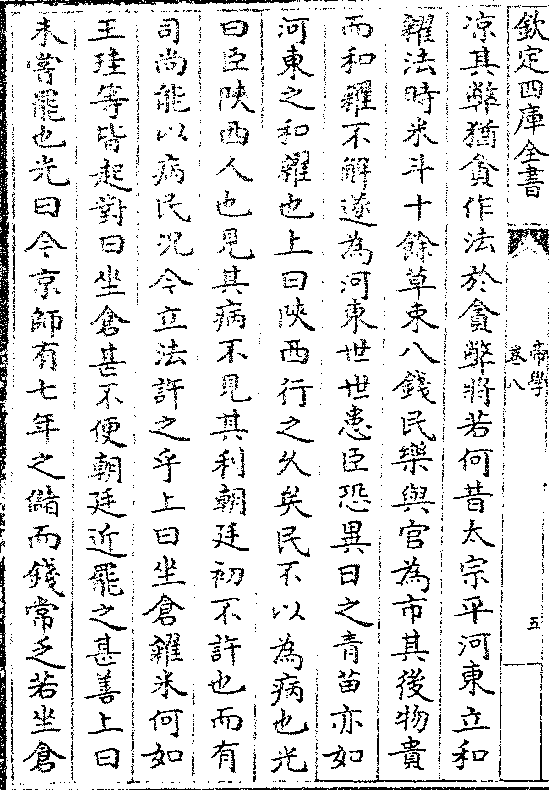 欽定四庫全書
帝學
卷八
五
凉其弊猶貪作法於貪弊將若何昔太宗平河東立和
糴法時米斗十餘草束八錢民樂與官為市其後物貴
而和糴不解遂為河東世世患臣恐異日之青苗亦如
河東之和糴也上曰陝西行之久矣民不以為病也光
曰臣陝西人也見其病不見其利朝廷初不許也而有
司尚能以病民况今立法許之乎上曰坐倉糴米何如
王珪等皆起對曰坐倉甚不便朝廷近罷之甚善上曰
未嘗罷也光曰今京師有七年之儲而錢常乏若坐倉